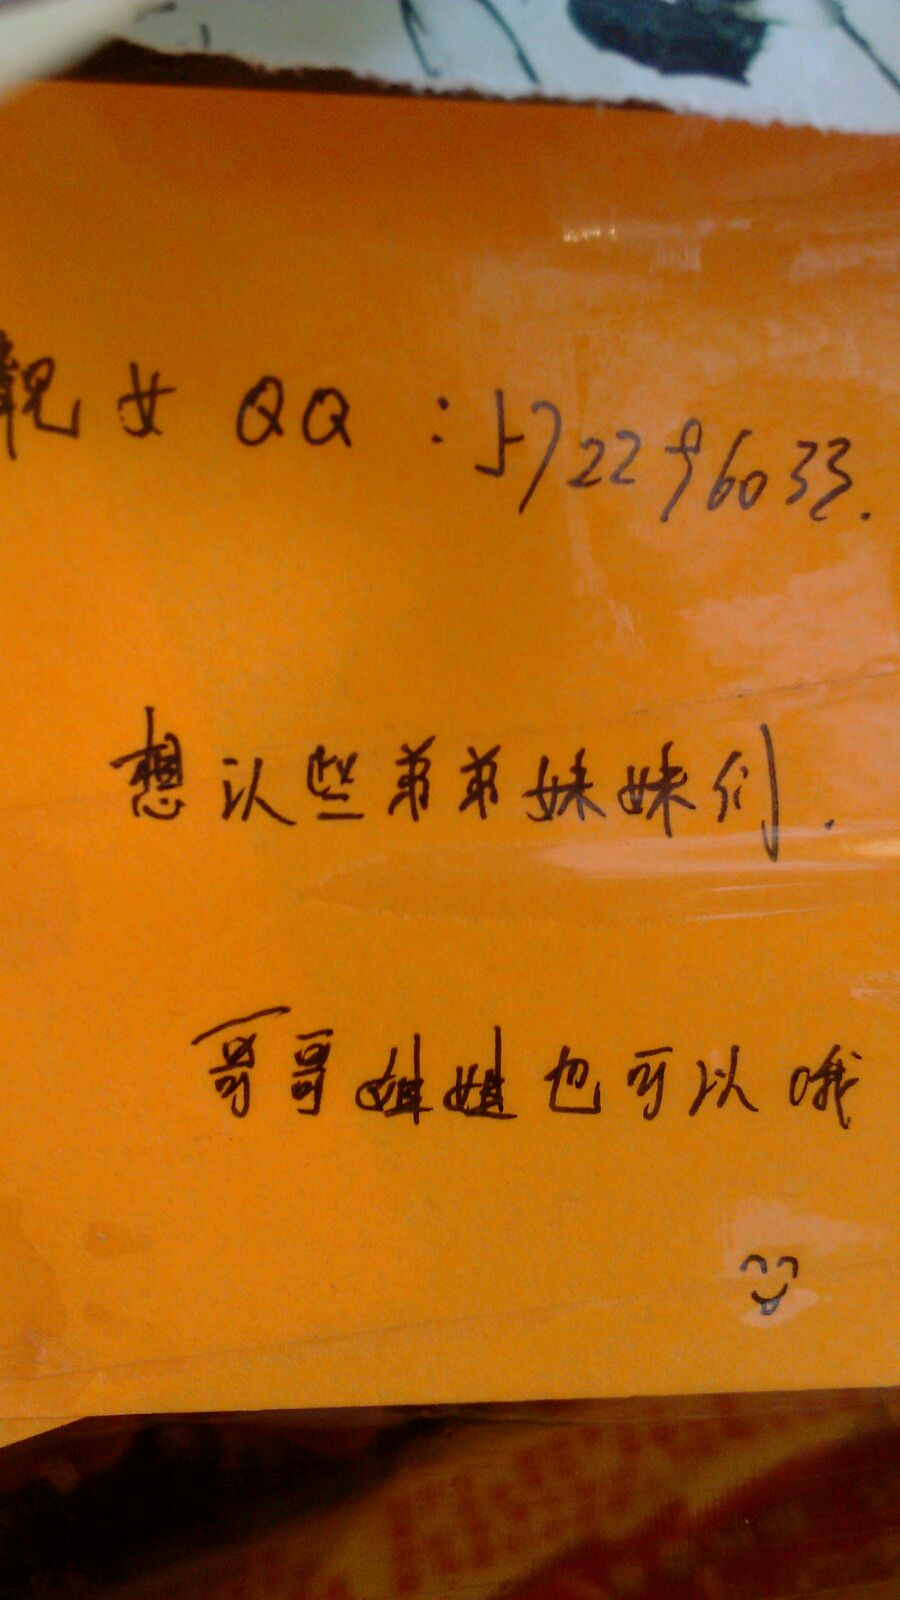 靓女 QQ：572296033.
想认些弟弟妹妹们.
哥哥姐姐也可以哦